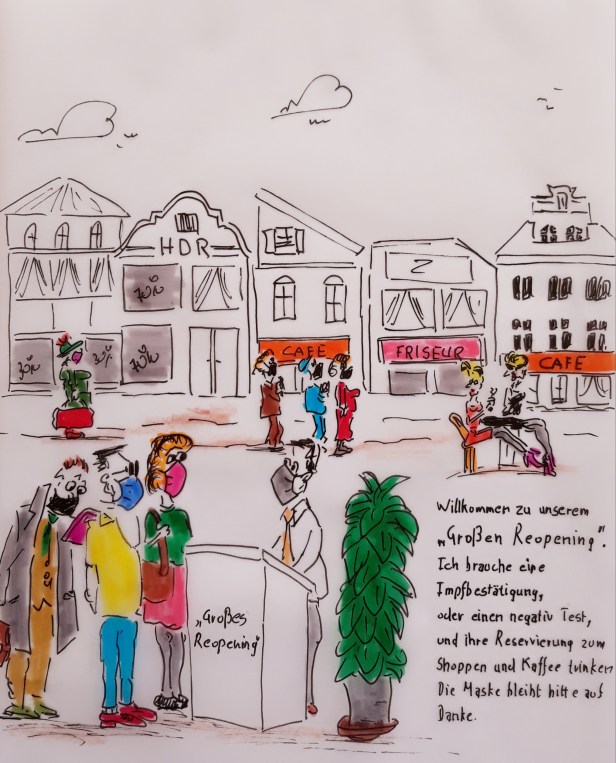 HDR
Z
CAFE
FRISEUR
CAFE
Willkommen zu unserem
„Großen Reopening".
Ich brauche eine
Impfbestätigung,
oder einen negativ Test,
und ihre Reservierung zum
Shoppen und Kaffee trinken
Die Maske bleibt bitte auf
Danke.
„Großes
Reopening"